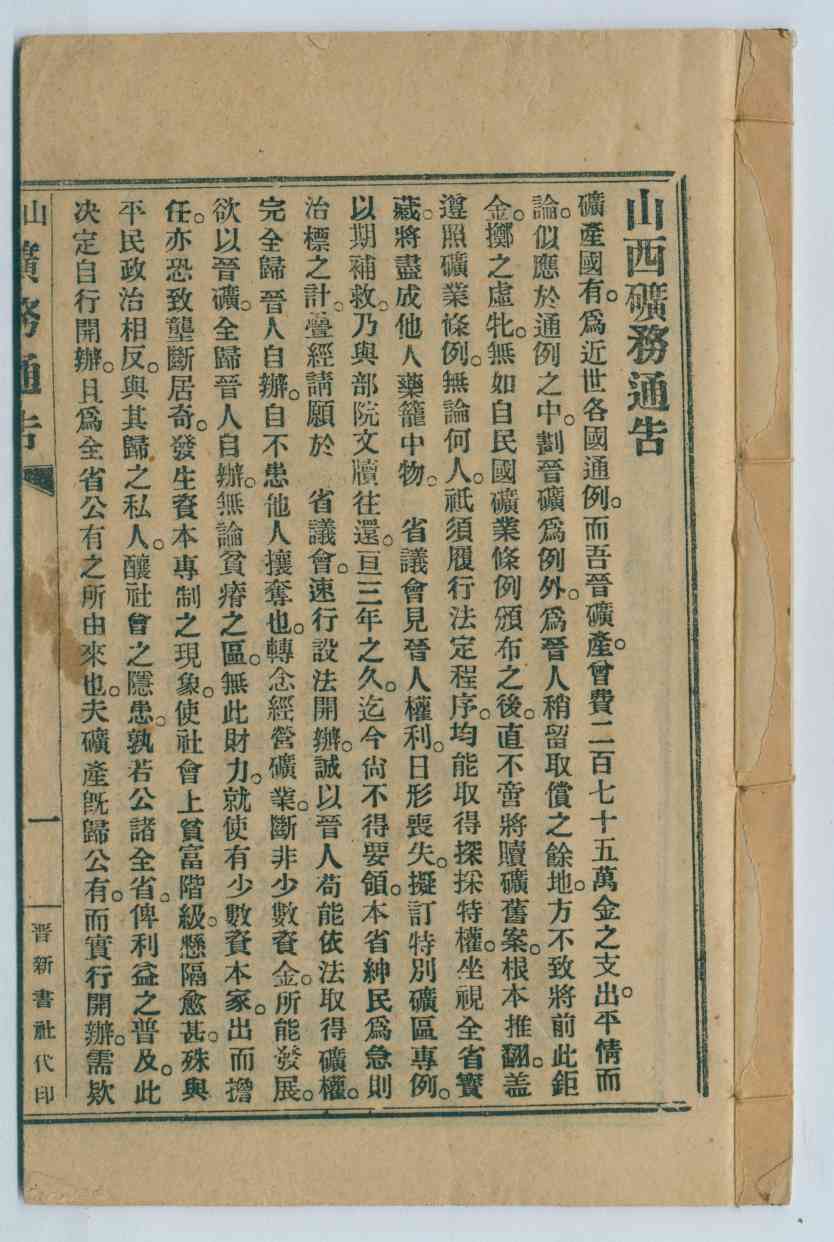 山西礦務通告
礦產國有。爲近世各國通例。而吾晉礦產。曾費二百七十五萬金之支出。平情而
論。似應於通例之中。劃晉礦爲例外。爲晉人稍留取償之餘地。方不致將前此鉅
金。擲之虛牝。無如自民國礦業條例頒布之後。直不啻將贖礦舊案。根本推翻。蓋
遵照礦業條例。無論何人。祇須履行法定程序。均能取得探採特權。坐視全省寶
藏。將盡成他人藥籠中物。　省議會見晉人權利。日形喪失。擬訂特別礦區專例。
以期補救。乃與部院文牘往還。亘三年之久。迄今尙不得要領。本省紳民爲急則
治標之計。疊經請願於　省議會。速行設法開辦。誠以晉人苟能依法取得礦權。
完全歸晉人自辦。自不患他人攘奪也。轉念經營礦業。斷非少數資金。所能發展。
欲以晉礦。全歸晉人自辦。無論貧瘠之區。無此財力。就使有少數資本家。出而擔
任。亦恐致壟斷居奇。發生資本專制之現象。使社會上貧富階級。懸隔愈甚。殊與
平民政治相反。與其歸之私人。釀社會之隱患。孰若公諸全省。俾利益之普及。此
決定自行開辦。且爲全省公有之所由來也。夫礦產旣歸公有。而實行開辦。需欵
山　礦務通告
一
晋新書社代印